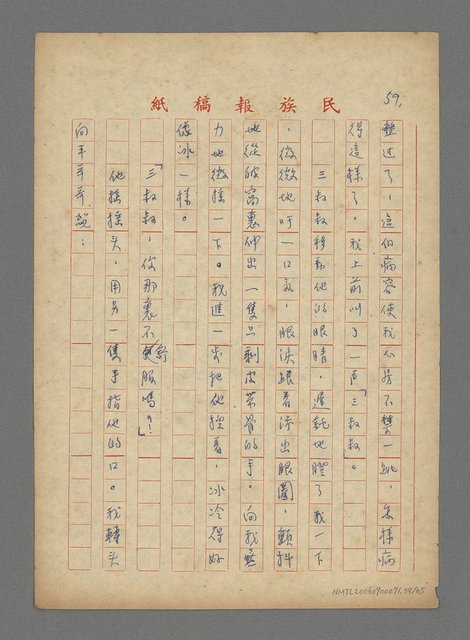 59.
民族報稿紙
整過了，這何病容使我心房不禁一跳，怎樣病
得這樣了。我上前叫了一声「三叔叔」。
三叔叔移動他的眼睛，遲鈍地瞪了我一下
，微微地吁一口氣，眼淚跟着流出眼圈，顫抖
地從破窩裏伸出一隻只剩皮帶骨的手，向我無
力地微搖一下。我進一步把他握着，冰冷得好
像冰一樣。
「三叔叔，你那裏不舒服嗎？」
他搖搖頭，用另一隻手指他的口。我轉头
向平哥哥說：
NMTL20060900071,59/65